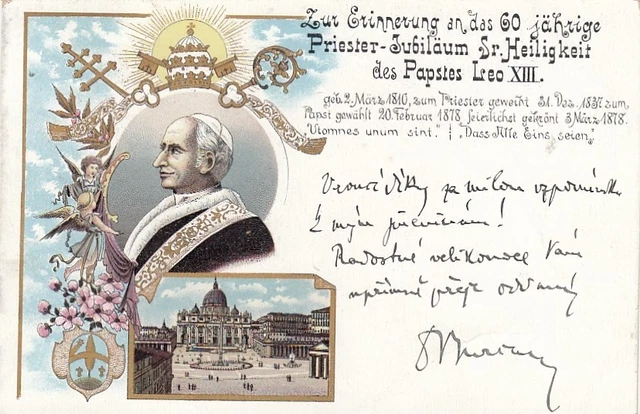 Zur Erinnerung an das 60 jährige
Priester-Jubiläum Sr. Heiligkeit
des Papstes Leo XIII.
geb. 2. März 1810, zum Priester geweiht 31. Dez. 1837 zum
Papst gewählt 20. Februar 1878 feierlichst gekrönt 3 März 1878.
"Utomnes unum sint." | "Dass Alle Eins seien."
Vroucí díky za milou vzpomínku
k mým
Radostné velikonoce Vám
upřímně přeje oddaný